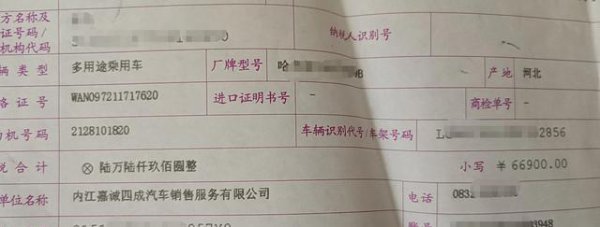 方名称及
证号码/
机构代码
纳税人识别号
辆类型 多用途乘用车 厂牌型号 哈 产地 河北
格证号 WAN097211717620 进口证明书号 - 商检单号 -
机号码 2128101820 车辆识别代号/车架号码 L 2856
税合计 ⊗ 陆万陆仟玖佰圆整 小写 ¥ 66900.00
单位名称 内江嘉诚四成汽车销售服务有限公司 电话 0832
账号 03948